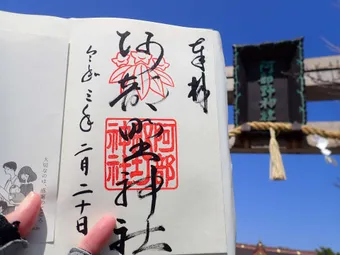 奉拝
阿部野神社
令和三年二月二十日
阿部
野
神社
阿部野神社